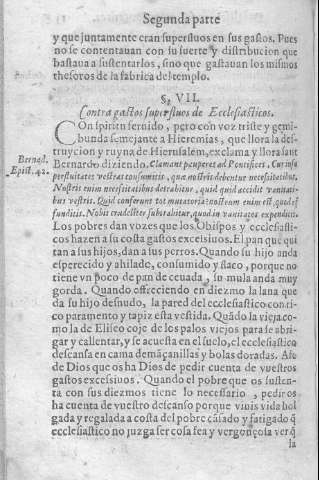 Segunda parte
y que juntamente eran superfluos en sus gastos. Pues
no se contentauan con su suerte y distribucion que
bastaua a sustentarlos, sino que gastauan los mismos
thesoros de la fabrica del templo.
§. VII.
Contra gastos superfluos de Ecclesiasticos.
COn spiritu feruido, pero con voz triste y gemi-
bunda semejante a Hieremias, que llora la de-
struycion y ruyna de Hierusalem, exclama y llora sant
Bernardo diziendo, Clamant pauperes ad Pontifices. Cur in
Bernad.
Epist. 42.
Nostris enim necessitatibus detrahitur, quid quid accidit vanitati-
bus vestris. Quid conferunt tot mutatoria
funditis. Nobis crudeliter subtrahitur, quod in vanitates expenditis.
Los pobres dan vozes que los Obispos y ecclesiasti-
cos hazen a su costa gastos excessiuos. El pan que qui
tan a sus hijos, dan a sus perros. Quando su hijo anda
esperecido y ahilado, consumido y flaco, porque no
tiene vn poco de pan de ceuada, su mula anda muy
gorda. Quando offreciendo en diezmo la lana que
da su hijo desnudo, la pared del ecclesiastico con ri-
co paramento y tapiz esta vestida. Quādo la vieja co-
mo la de Eliseo coje de los palos viejos para se abri-
gar y callentar, y se acuesta en el suelo, el ecclesiastico
descansa en cama de māçanillas y bolas doradas. Afe
de Dios que os ha Dios de pedir cuenta de vuestros
gastos excessiuos. Quando el pobre que os susten-
ta con sus diezmos tiene lo necessario, pediros
ha cuenta de vuestro descanso porque viuis vida hol
gada y regalada a costa del pobre cāsado y fatigado q̄
ecclesiastico no juzga ser cosa fea y vergonçosa ver q̄
la